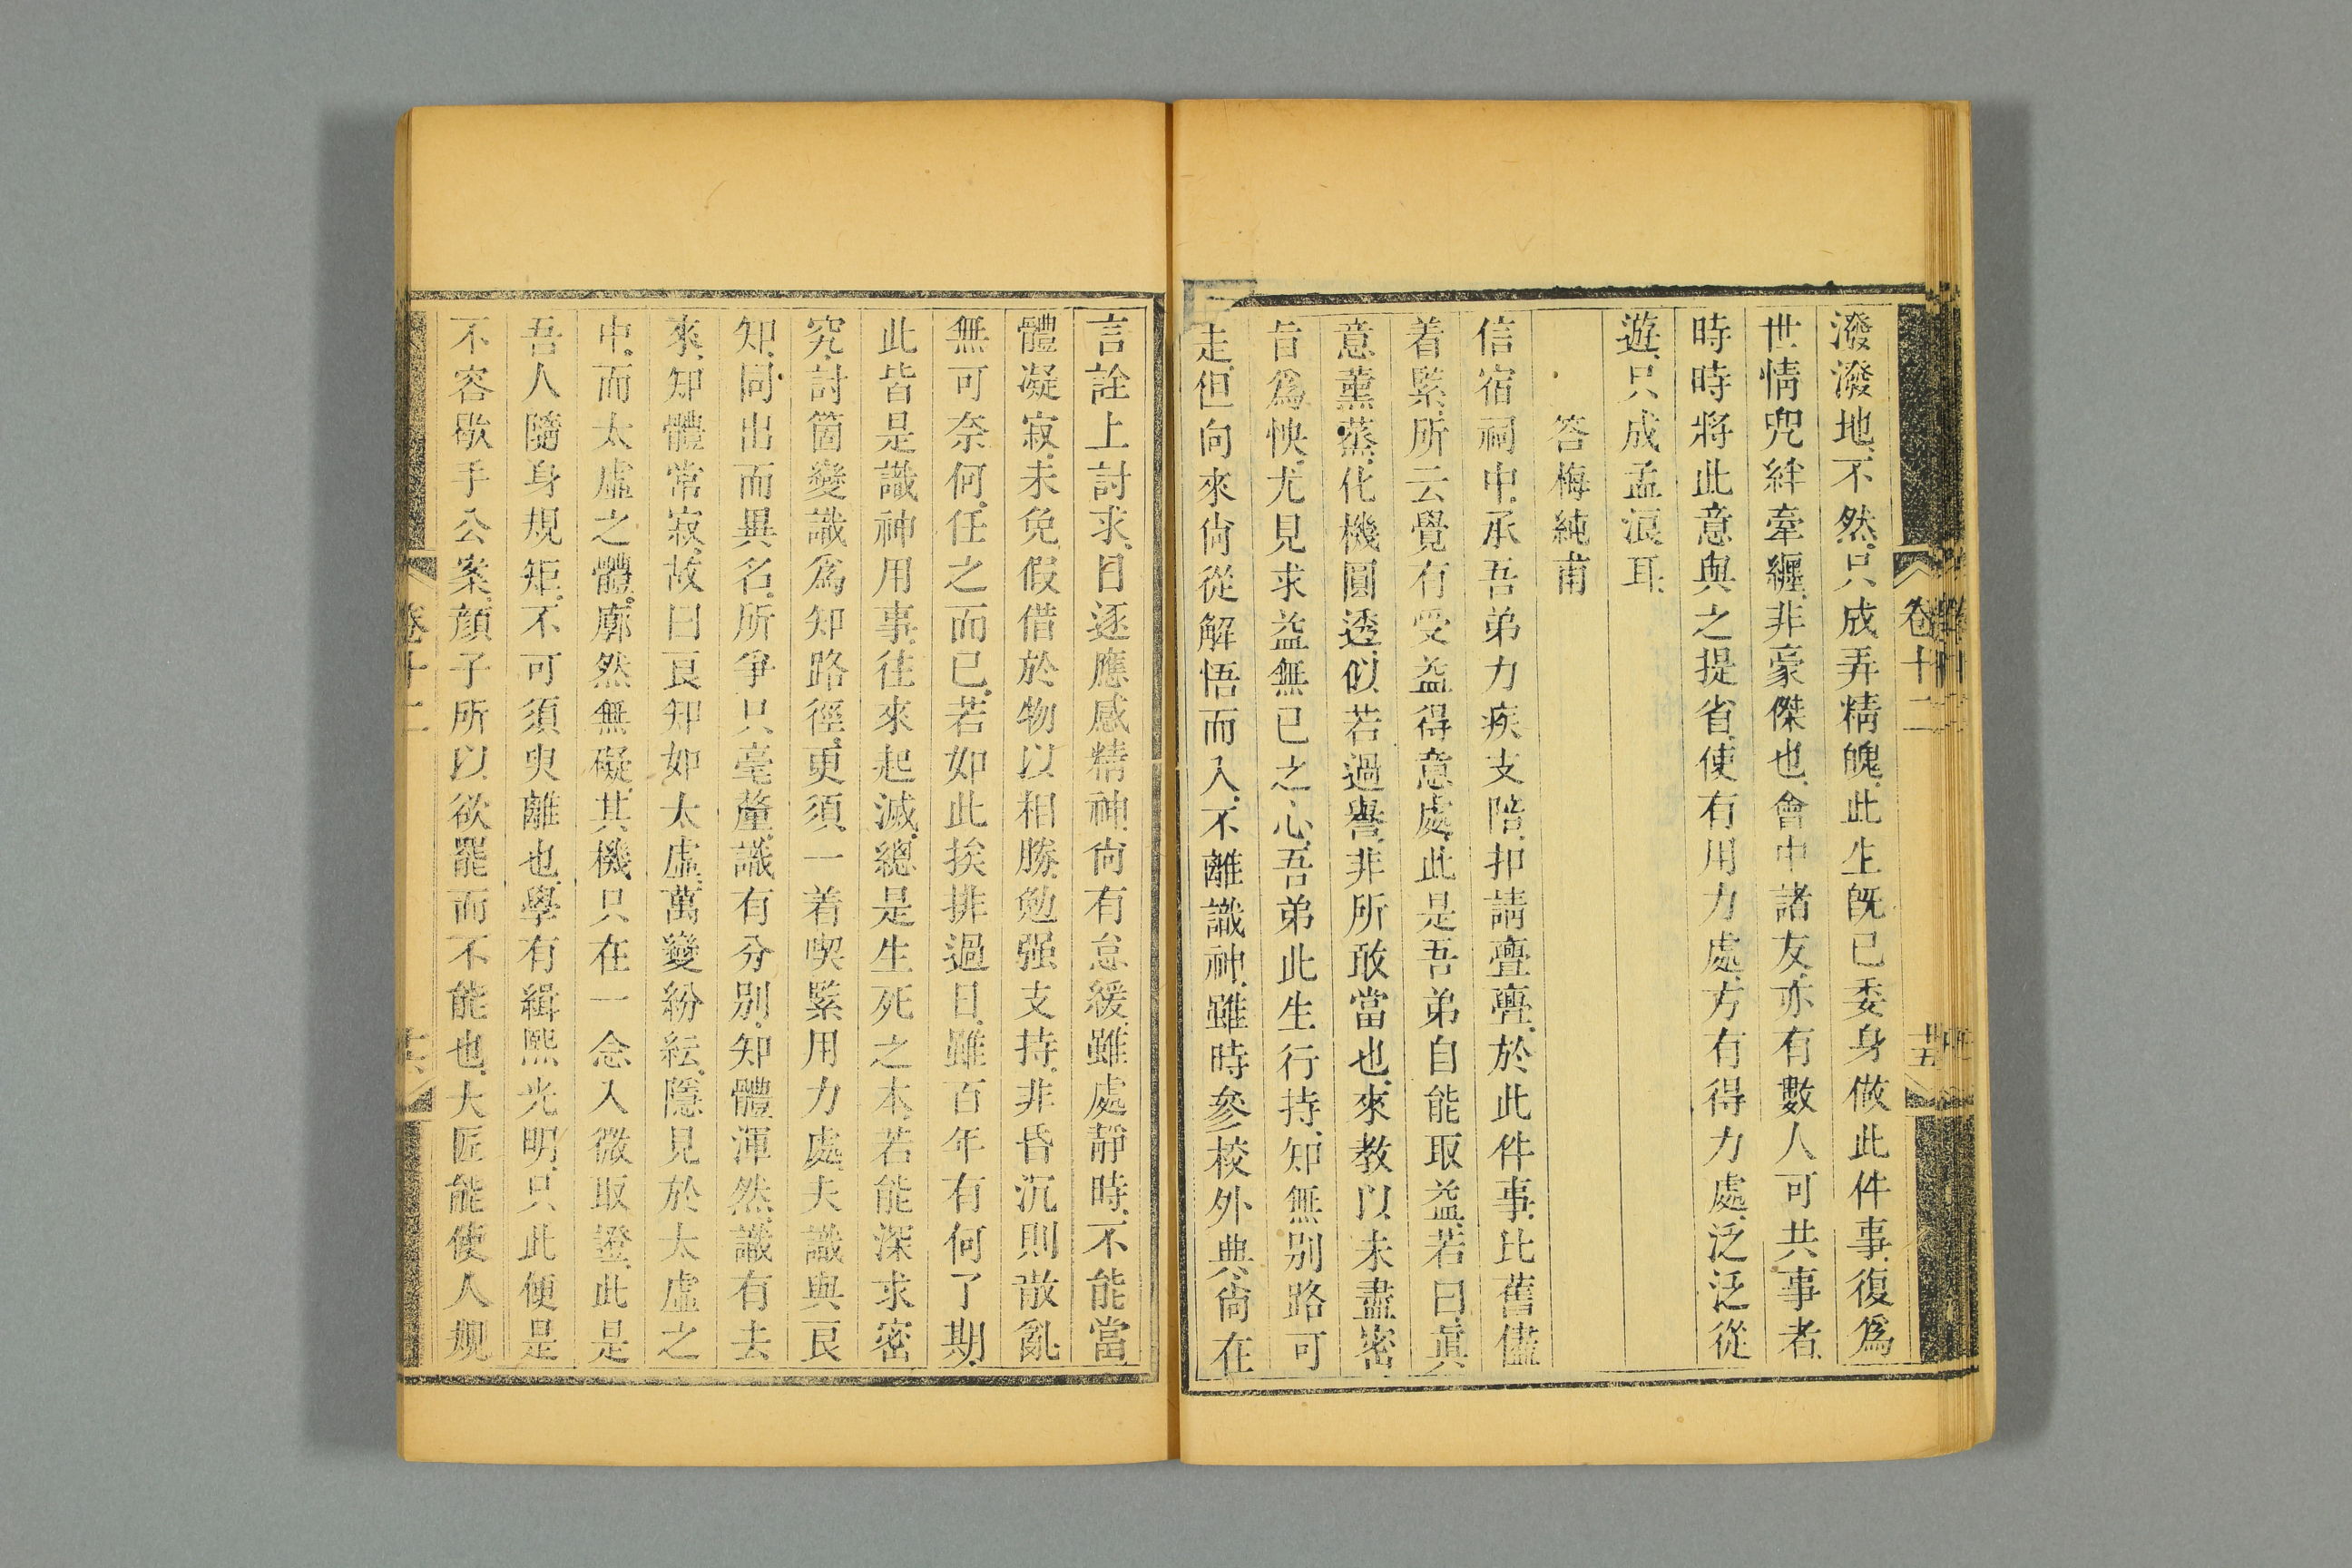 潑潑地、不然、只成弄精魄、此生既已委身做此件事、復爲
世情兜絆牽纏、非豪傑也、會中諸友、亦有數人可共事者、
時時將此意與之提省、使有用力處、方有得力處、泛泛從
遊、只成孟浪耳、
答梅純甫
信宿祠中、承吾弟力疾支陪、扣請亹亹、於此件事、比舊儘
着緊、所云覺有受益得意處、此是吾弟自能取益、若曰、眞
意薰蒸、化機圓透、似若過譽、非所敢當也、來教以未盡密
旨爲怏、尤見求益無已之心、吾弟此生行持、知無別路可
走、但向來尙從解悟而入、不離識神、雖時參校外典、尙在
卷十二
言詮上討求、日逐應感精神、尙有怠緩、雖處靜時、不能當
體凝寂、未免假借於物以相勝、勉强支持、非昏沉則散亂
無可奈何、任之而已、若如此挨排過日、雖百年有何了期、
此皆是識神用事、往來起滅、總是生死之本、若能深求密
究、討箇變識爲知路徑、更須一着喫緊用力處、夫識與良
知、同出而異名、所爭只毫釐、識有分別、知體渾然、識有去
來、知體常寂、故曰良知如太虛、萬變紛紜、隱見於太虛之
中、而太虛之體、廓然無礙、其機只在一念入微取證、此是
吾人隨身規矩、不可須臾離也、學有緝熙光明、只此便是
不容歇手公案、顏子所以欲罷而不能也、大匠能使人規
卷十二